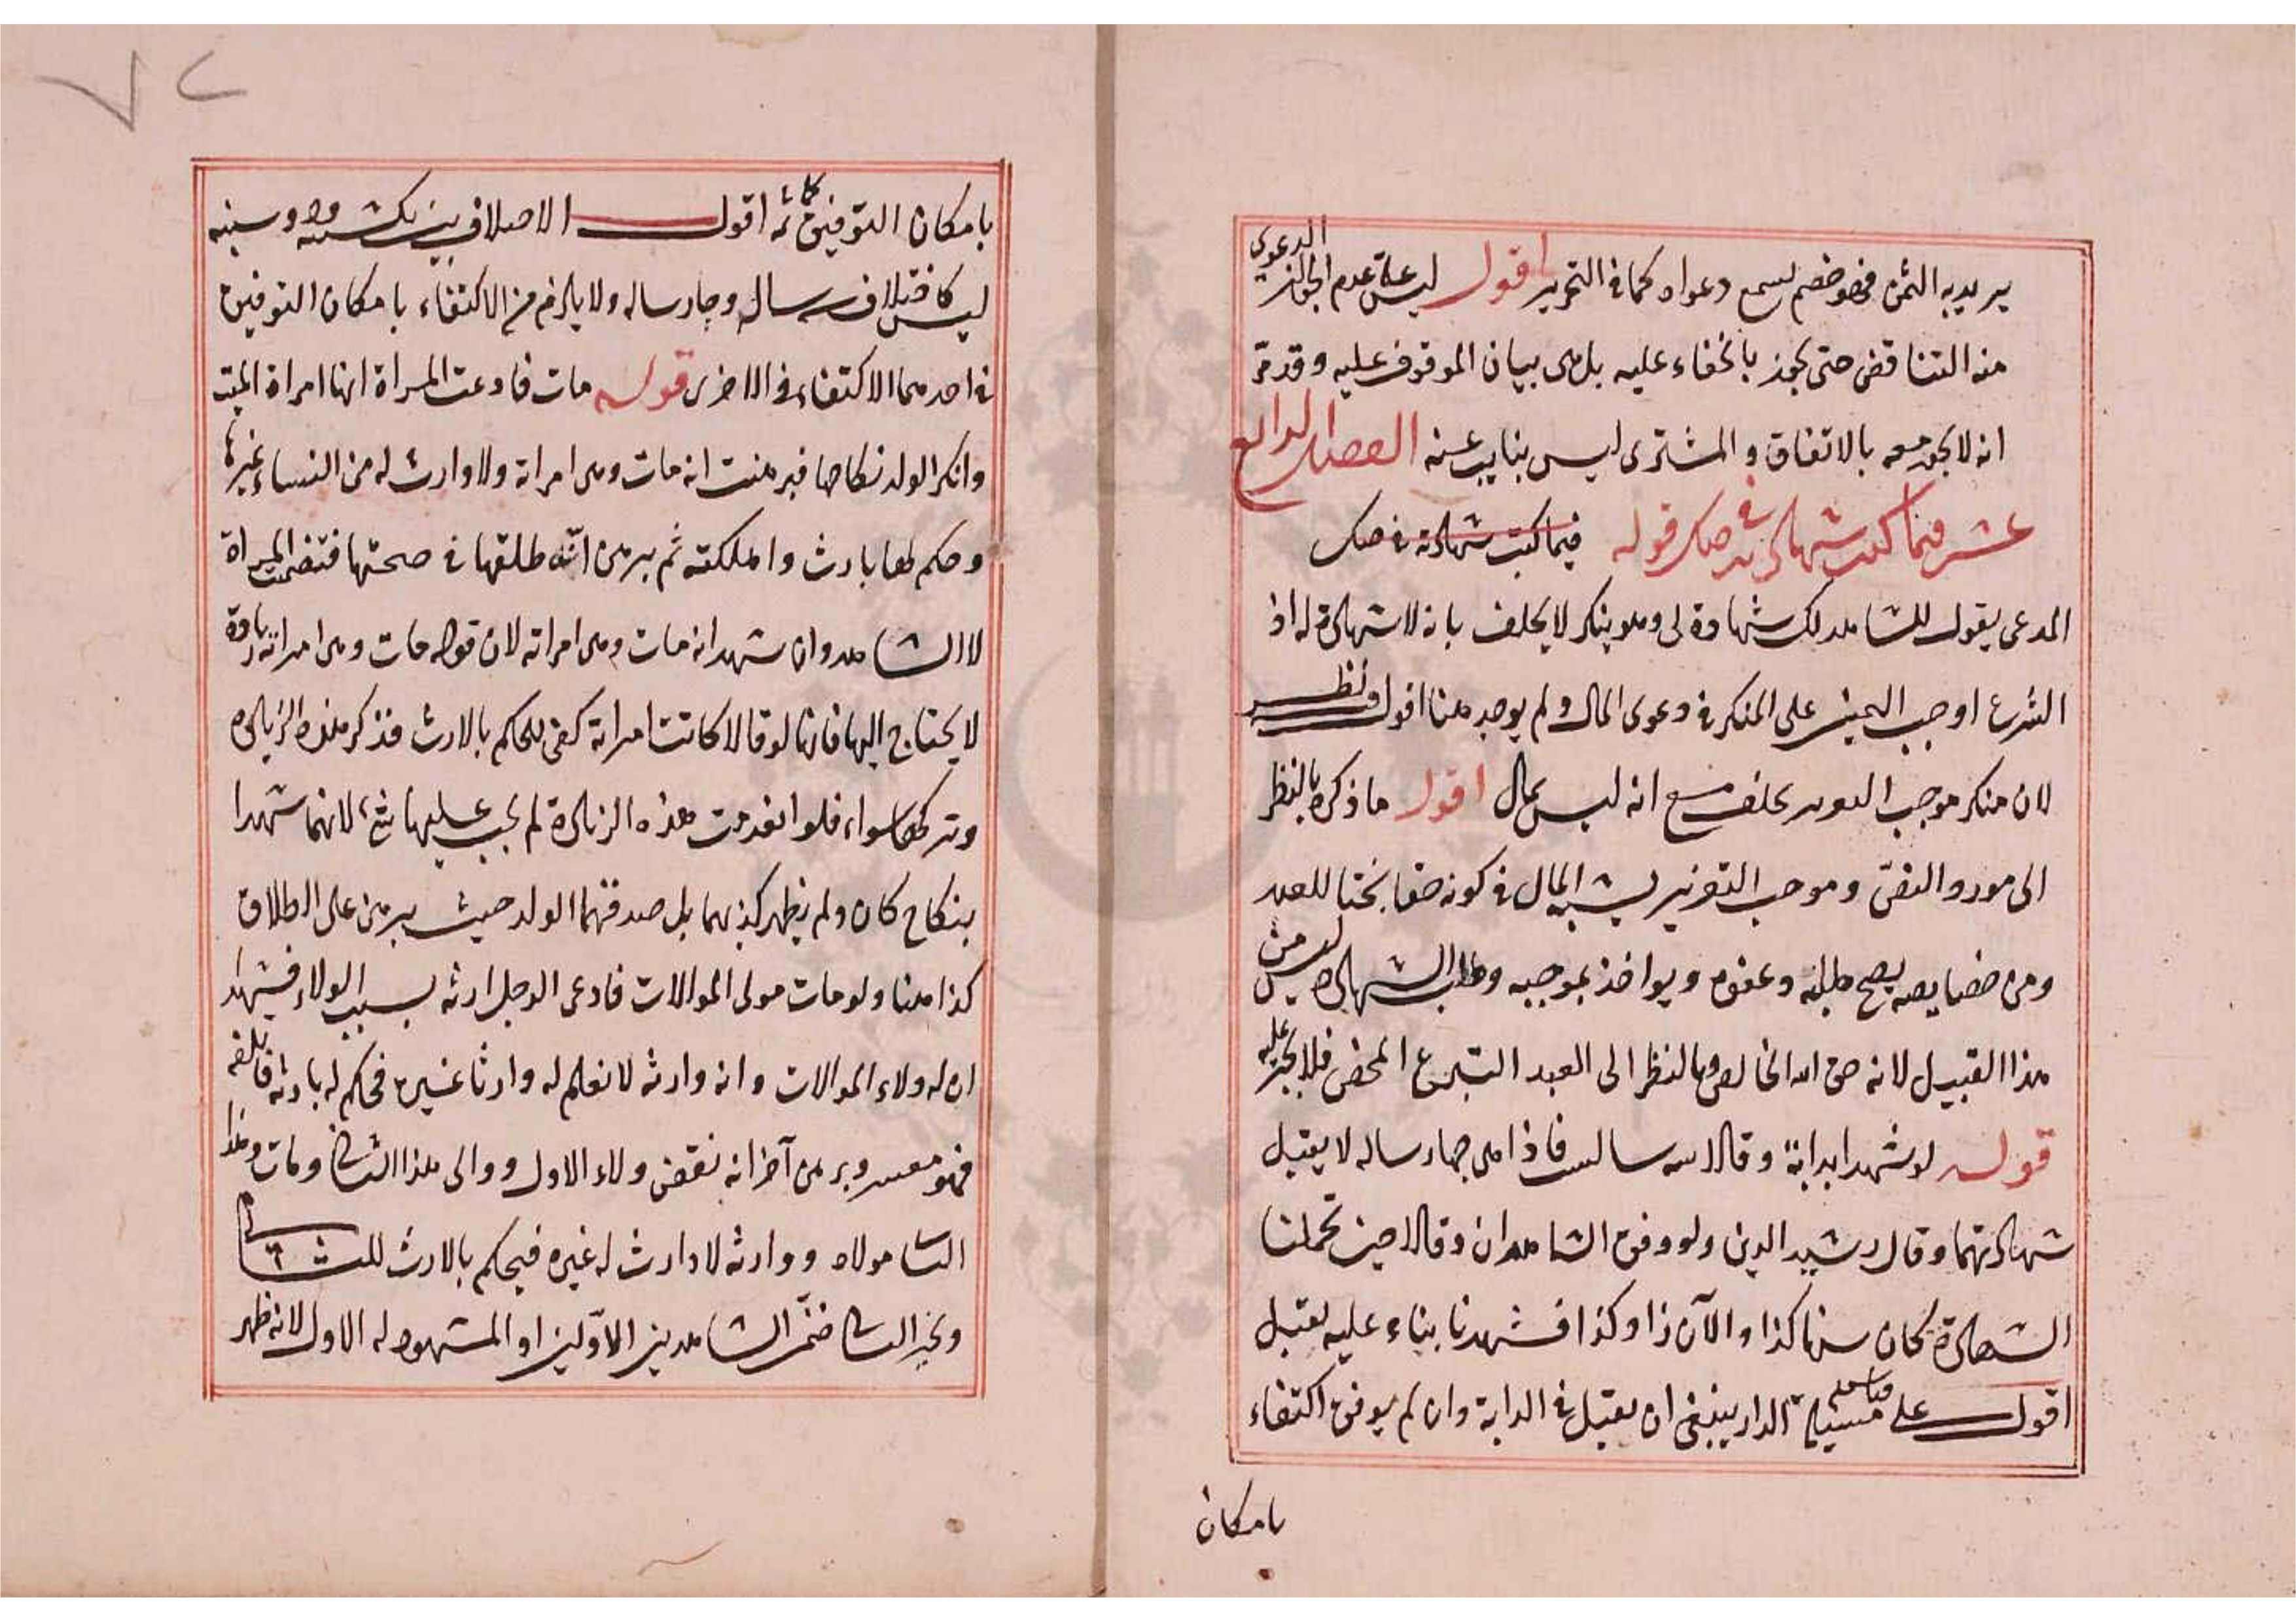 يريد به الثمن فهو خصم لسمع دعواه كما في التحرير اقول ليس علة عدم الجواز الدعوى
منه التناقض حتى يجوز بالخفاء عليه بل هي بيان الموقوف عليه وقد مرّ
انه لا يجوز معه بالاتفاق والمشترى ليس بنايب عنه الفصل الرابع
عشر فيما كتب شهادته في صك قوله فيما كتب شهادته في صك
المدعى يقول للشاهد لك شهادة لى وهو ينكر لا يحلف بانه لا شهادة له اذ
الشرع اوجب اليمين على المنكر في دعوى المال ولم يوجد هنا اقول وفيه نظر
لان منكر موجب التعزير يحلف مع انه ليس بمال اقول ما ذكره بالنظر
الى مورد النص وموجب التعزير يشبه المال في كونه حقا بحتا للعبد
ومن خصايصه يصح طلبه وعفوه ويواخذ بموجبه وطلب الشهادة ليس من
هذا القبيل لانه حق الله الخالص وبالنظر الى العبد التبرع المحض فلا يجبر عليه
قوله لو شهدا بدابة وقالا سه سالس فاذا هى چهار ساله لا يقبل
شهادتهما وقال رشيد الدين ولو وفق الشاهدان وقالا حين تحملنا
الشهادة كان سنها كذا والآن ذا وكذا فشهدنا بناء عليه يقبل
اقول على قياس مسيلة الدار ينبغى ان يقبل في الدابة وان لم يوفق اكتفاء
بامكان
٧٢
بامكان التوفيق كما مر ثم اقول الاختلاف بين
ليس كاختلاف سه ساله وچار ساله ولا يلزم من الاكتفاء بامكان التوفيق
في احدهما الاكتفاء في الاخرى قوله مات فادعت المراة انها امراة الميت
وانكر الولد نكاحها فبرهنت انه مات وهى امراته ولا وارث له من النساء غيرها
وحكم لها بارث واهلكته ثم برهن انّه طلقها في صحتها فتضمن المراة
لا الشاهد وان شهد انه مات وهى امراته لان قوله مات وهى امراته زيادة
لا يحتاج اليها فانهما لو قالا كانت امراته كفى للحكم بالارث فذكر هذه الزيادة
وتركها سواء فلو انعدمت هذه الزيادة لم يجب عليهما شئ لانهما شهدا
بنكاح كان ولم يظهر كذبهما بل صدقهما الولد حيث برهن على الطلاق
كذا هنا ولو مات مولى الموالات فادعى الرجل ارثه بسبب الولاء فشهدا
ان له ولاء الموالات وانه وارثه لا نعلم له وارثا غيره فحكم له بارثه فاتلفه
فهو معسر وبرهن آخر انه نقض ولاء الاول ووالى هذا الثاني ومات وهذا
الثاني مولاه ووارثه لا وارث له غيره فيحكم بالارث للثاني
ويخير الثاني ضمّن الشاهدين الاوّلين او المشهود له الاول لانه ظهر